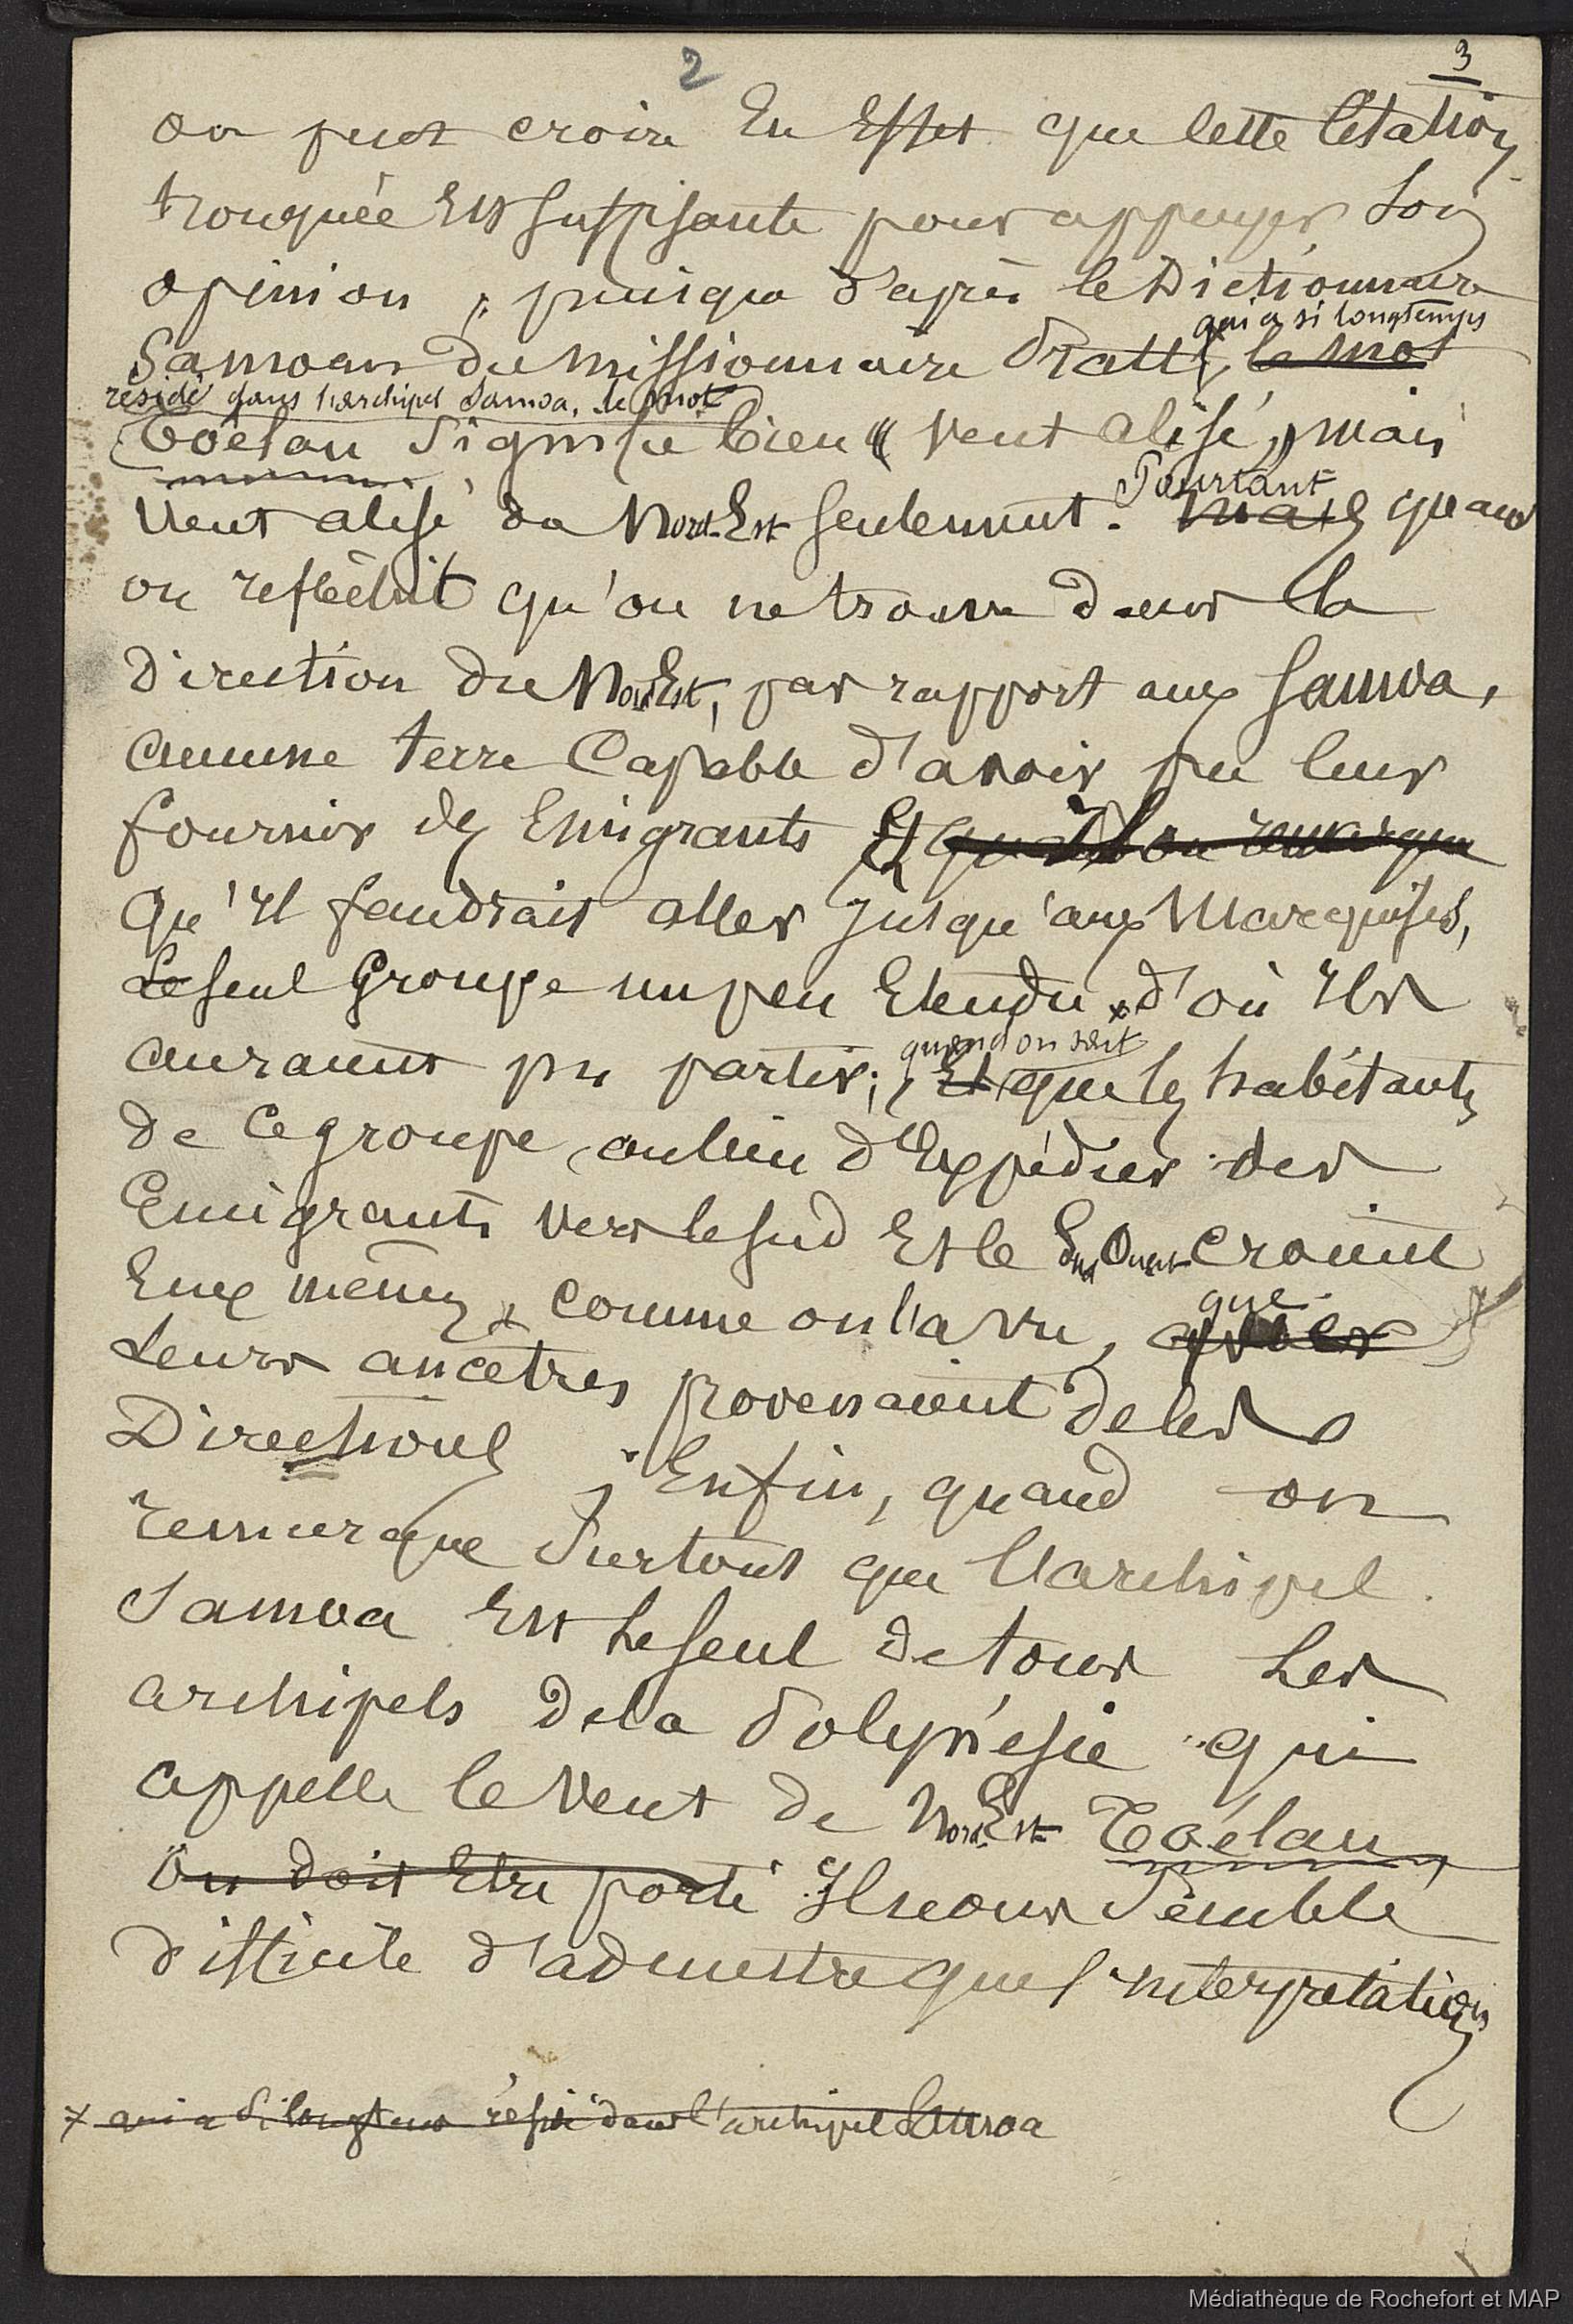 2
3
on peut croire En Effet que Cette Citation
tronquée Est suffisante pour appuyer son
opinion, puisque d'après le Dictionnaire
qui a si longtemps
Samoan du missionnaire Pratt, le mot
résidé dans l'archipel Samoa, le mot
Toélau signifie bien « vent alisé, » mais
Vent alisé du Nord-Est seulement. Pourtant mais quand
on réfléchit qu'on ne trouve dans la
Direction du Nord Est, par rapport aux Samoa,
aucune terre Capable d'avoir pu leur
fournir des Emigrants Et qu'on remarque
qu'Il faudrait aller jusqu'aux Marquises,
Le seul Groupe un peu Etendu d'où Ils
auraient pu partir; quand on sait Et que les habitants
de Ce groupe, au lieu d'Expédier des
Emigrants vers le Sud Et le Sud Ouest Croient
Eux mêmes, comme on l'a vu, que
Leurs ancêtres provenaient de les
Directions; Enfin, quand on
remarque Surtout que l'archipel
Samoa Est Le seul de tous Les
archipels de la Polynésie qui
appelle le vent de Nord-Est Toélau,
On doit Etre porté Il nous Semble
difficile d'admettre que l'interprétation
x qui a Si longtems résidé dans l'archipel Samoa
Médiathèque de Rochefort et MAP